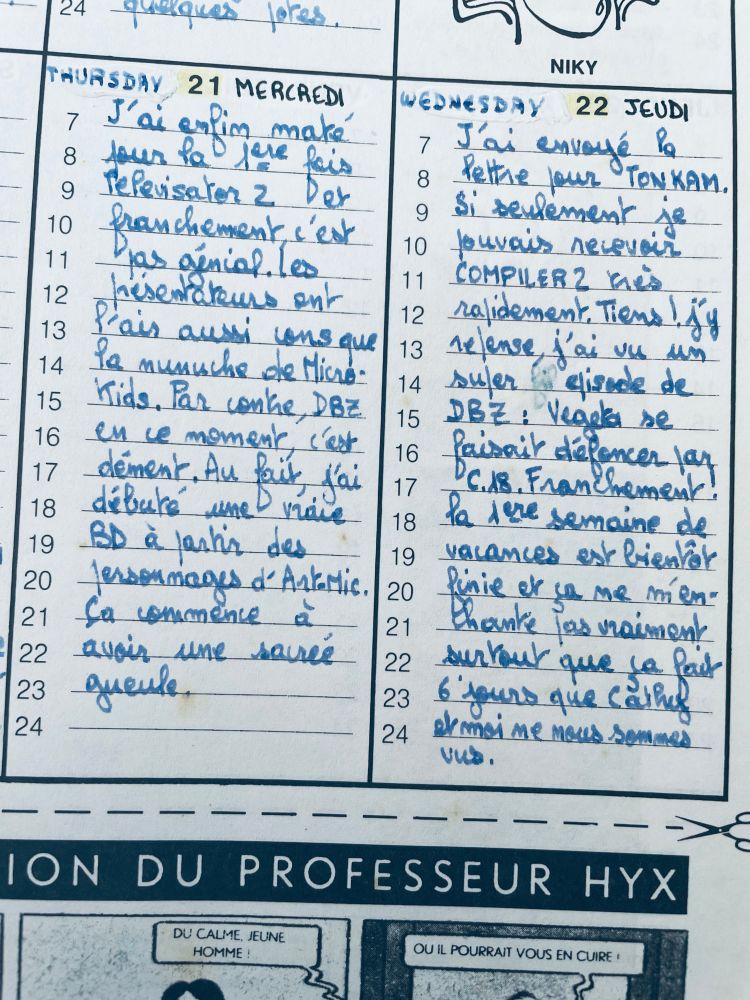 24 quelques potes.
NIKY
THURSDAY 21 MERCREDI
7 J'ai enfin maté
8 pour la 1ere fois
9 Télévisator 2 et
10 franchement c'est
11 pas génial. Les
12 présentateurs ont
13 l'air aussi cons que
14 la nunuche de Micro-
15 Kids. Par contre, DBZ
16 en ce moment, c'est
17 dément. Au fait, j'ai
18 débuté une vraie
19 BD à partir des
20 personnages d'ArtMic.
21 Ça commence à
22 avoir une sacrée
23 gueule.
24
WEDNESDAY 22 JEUDI
7 J'ai envoyé la
8 lettre pour TONKAM.
9 Si seulement je
10 pouvais recevoir
11 COMPILER 2 très
12 rapidement. Tiens ! j'y
13 repense, j'ai vu un
14 super episode de
15 DBZ : Vegeta se
16 faisait défoncer par
17 C.18. Franchement !
18 la 1ere semaine de
19 vacances est bientôt
20 finie et ça ne m'en-
21 chante pas vraiment
22 surtout que ça fait
23 6 jours que Cathy
24 et moi ne nous sommes
vus.
ION DU PROFESSEUR HYX
DU CALME, JEUNE
HOMME !
OU IL POURRAIT VOUS EN CUIRE !